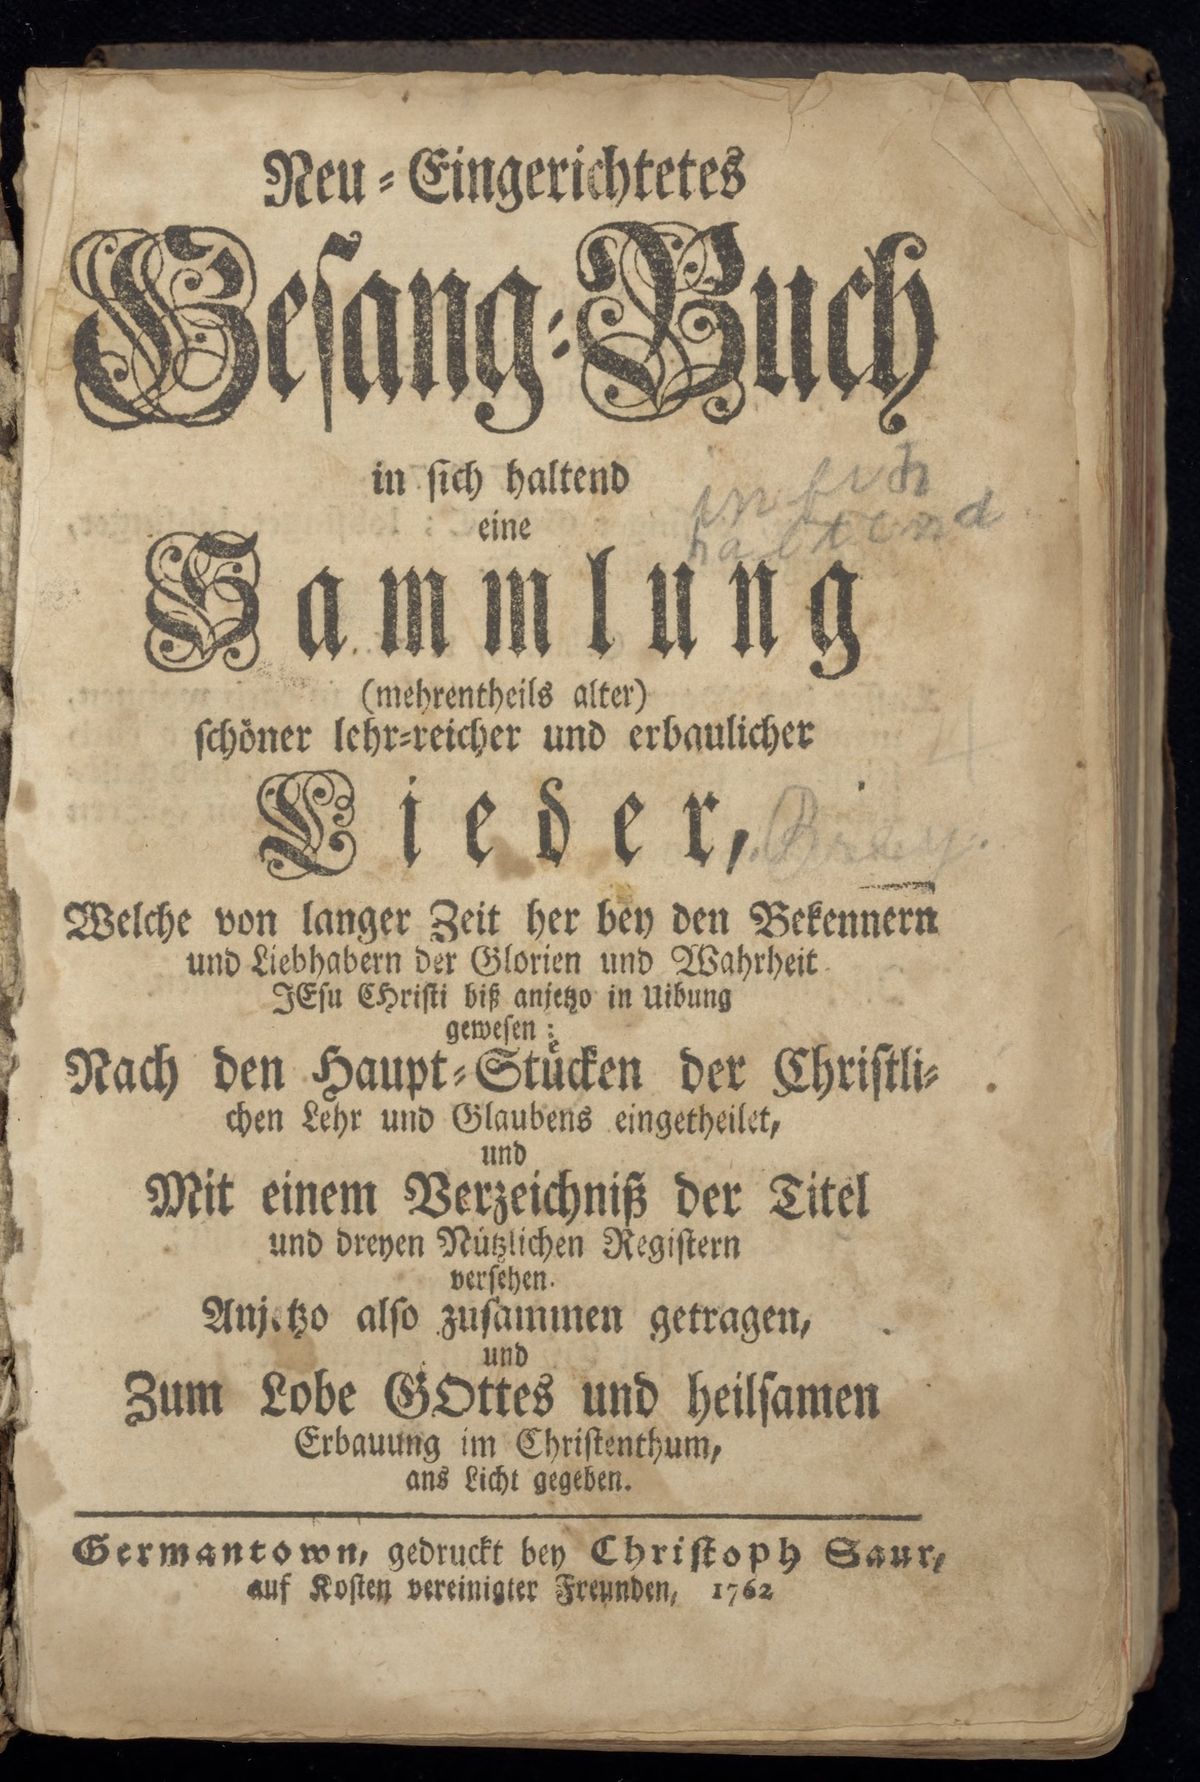 Neu-Eingerichtetes
Gesang-Buch
in sich haltend
eine
Sammlung
(mehrentheils alter)
schöner lehr-reicher und erbaulicher
Lieder,
Welche von langer Zeit her bey den Bekennern
und Liebhabern der Glorien und Wahrheit
JEsu CHristi biß anjetzo in Uibung
gewesen:
Nach den Haupt-Stücken der Christli-
chen Lehr und Glaubens eingetheilet,
und
Mit einem Verzeichniß der Titel
und dreyen Nützlichen Registern
versehen.
Anjetzo also zusammen getragen,
und
Zum Lobe GOttes und heilsamen
Erbauung im Christenthum,
ans Licht gegeben.
Germantown, gedruckt bey Christoph Saur,
auf Kosten vereinigter Freunden, 1762
in sich
haltend